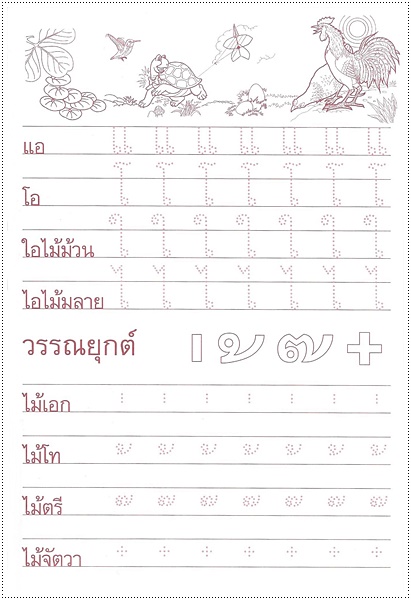 แอ แ แ แ แ แ แ แ
โอ โ โ โ โ โ โ โ
ใอไม้ม้วน ใ ใ ใ ใ ใ ใ ใ
ไอไม้มลาย ไ ไ ไ ไ ไ ไ ไ
วรรณยุกต์ ่ ้ ๊ ๋
ไม้เอก ่ ่ ่ ่ ่ ่ ่
ไม้โท ้ ้ ้ ้ ้ ้ ้
ไม้ตรี ๊ ๊ ๊ ๊ ๊ ๊ ๊
ไม้จัตวา ๋ ๋ ๋ ๋ ๋ ๋ ๋